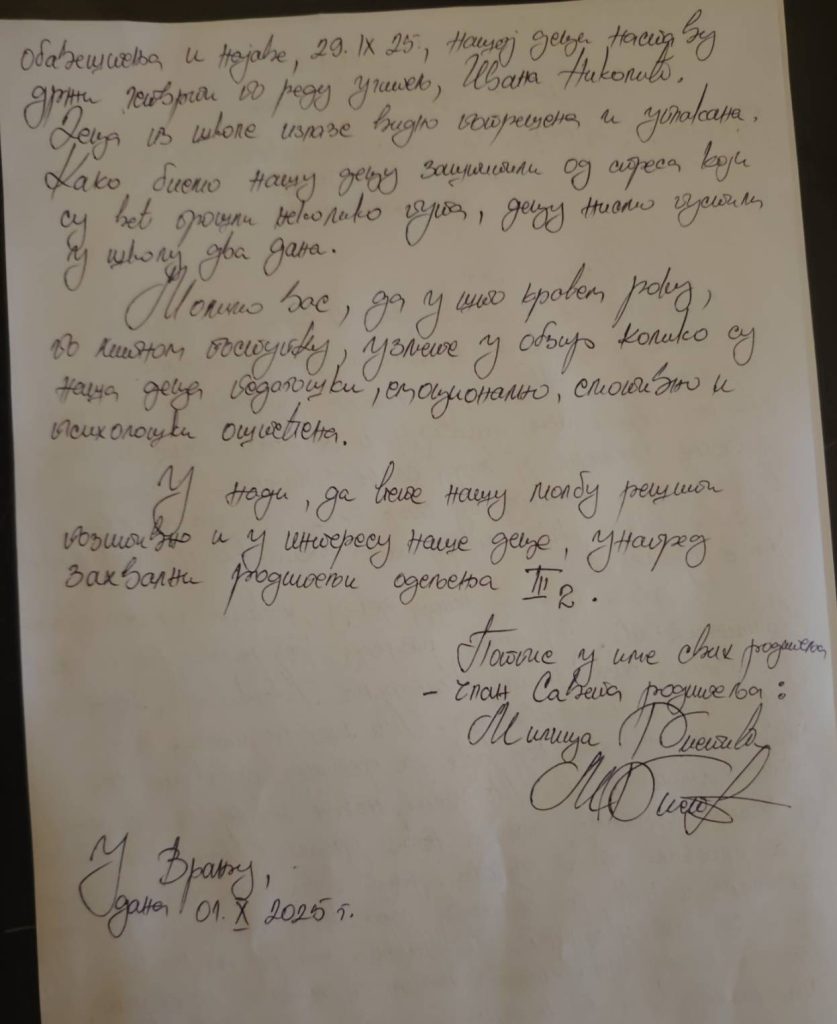 обавештења и најаве, 29. IX 25., нашој деци наставу
држи четврти по реду учитељ, Ивана Николић.
Деца из школе излазе видно потрешена и уплакана.
Како бисмо нашу децу заштитили од стреса који
су већ прошли неколико пута, децу нисмо пустили
у школу два дана.
Молимо вас, да у што краћем року,
по хитном поступку, узмете у обзир колико су
наша деца педагошки, емоционално, и
психолошки оштећена.
У нади, да ћете нашу молбу решити
позитивно и у интересу наше деце, унапред
захвални родитељи одељења III 2.
Потпис у име свих родитеља
- члан Савета родитеља:
Милица
У Врању,
дана 01. X 2025 г.